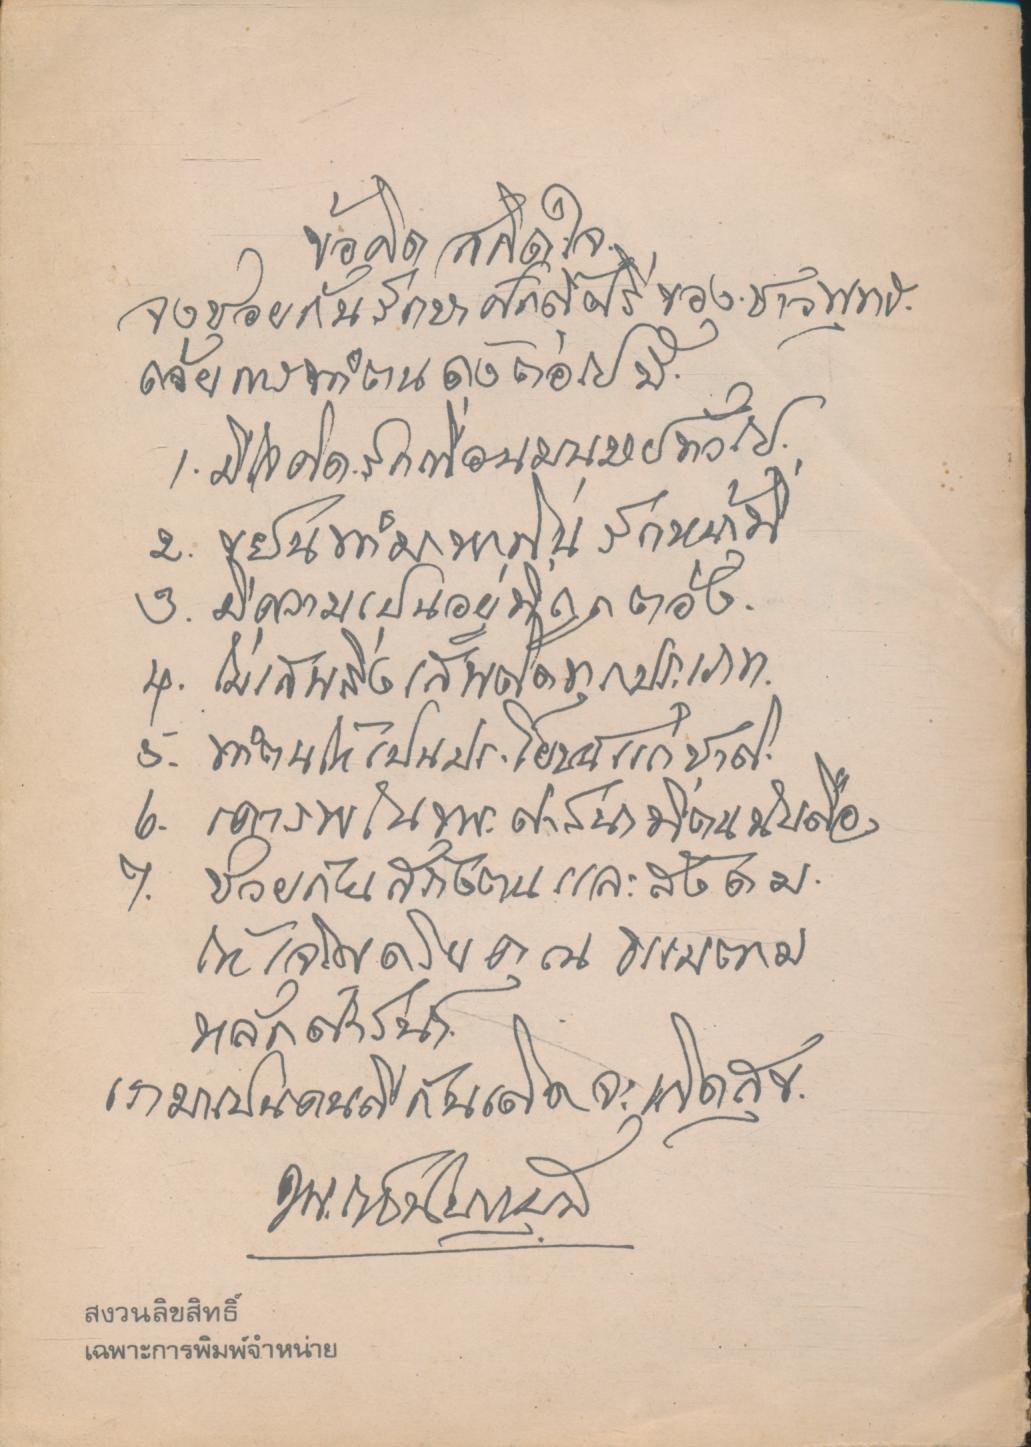 ข้อคิด สกิดใจ.
จงช่วยกันรักษาศักดิ์ศรี ของ ชาวพุทธ.
ด้วยการทำตน ดังต่อไปนี้.
1. มีจิตคิดรักเพื่อนมนุษย์ทั่วไป.
2. ขยันทำมาหากิน รักหน้าที่
3. มีความเป็นอยู่ที่ถูกต้อง.
4. ไม่เสพสิ่งเสพติดทุกประเภท.
5. ทำตนให้เป็นประโยชน์แก่ชาติ.
6. เคารพในพระศาสนาที่ตนนับถือ
7. ช่วยกันสร้างตนและสังคม.
ให้เจริญด้วยคุณธรรมตาม
หลักศาสนา.
เรามาเป็นคนดีกันเถิดจะเกิดสุข.
สงวนลิขสิทธิ์
เฉพาะการพิมพ์จำหน่าย